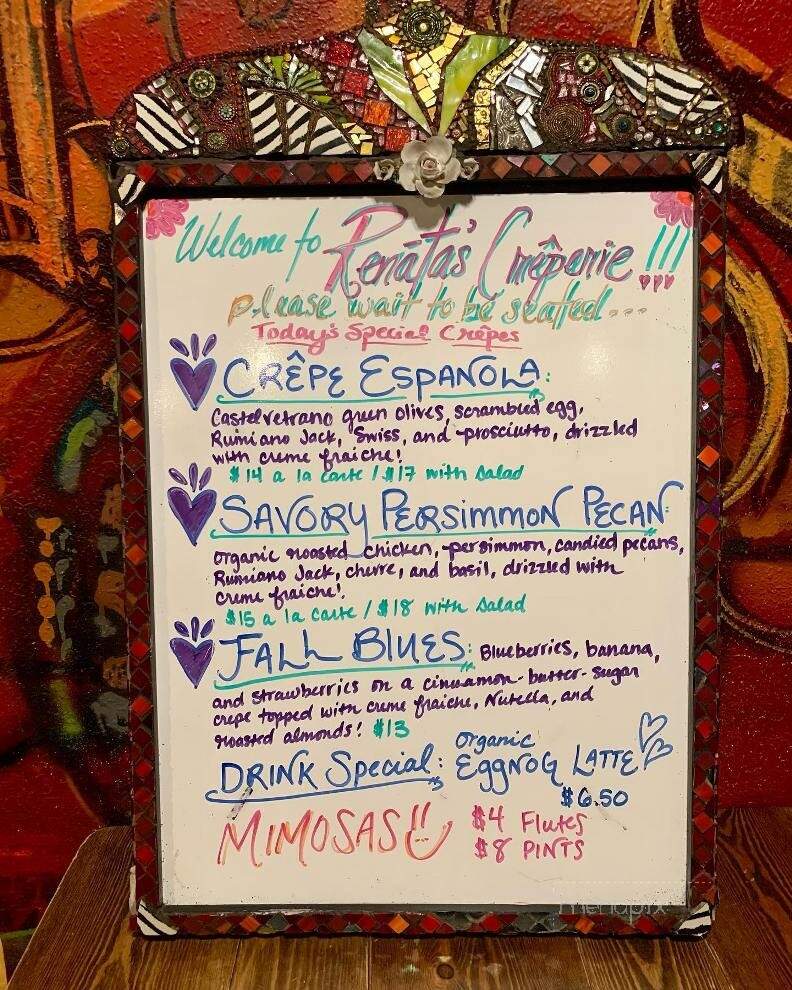 Welcome to Renāta's Crêperie!!!
please wait to be seated...
Today's Special Crêpes
CRÊPE ESPANOLA:
Castelvetrano green olives, scrambled egg,
Rumiano Jack, Swiss, and prosciutto, drizzled
with creme fraiche!
$14 a la carte / $17 with salad
SAVORY PERSIMMON PECAN:
organic roasted chicken, persimmon, candied pecans,
Rumiano Jack, chevre, and basil, drizzled with
creme fraiche!
$15 a la carte / $18 with salad
FALL BLUES: Blueberries, banana,
and strawberries on a cinnamon-butter-sugar
crepe topped with creme fraiche, Nutella, and
roasted almonds! $13
DRINK Special: organic EGGNOG LATTE
$6.50
MIMOSAS!! $4 Flutes
$8 PINTS
menupix